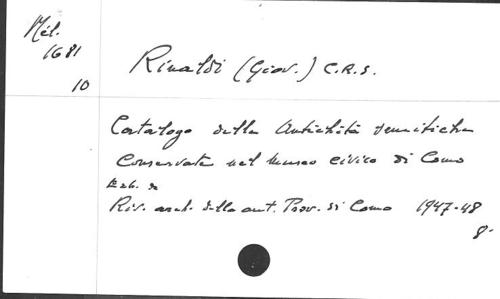 Mél.
1681
10
Rinaldi (Giov.) C.R.S.
Catalogo delle Antichità semitiche
Conservate nel Museo civico di Como
Extr. de
Riv. arch. della ant. Prov. di Como 1947-48
8°